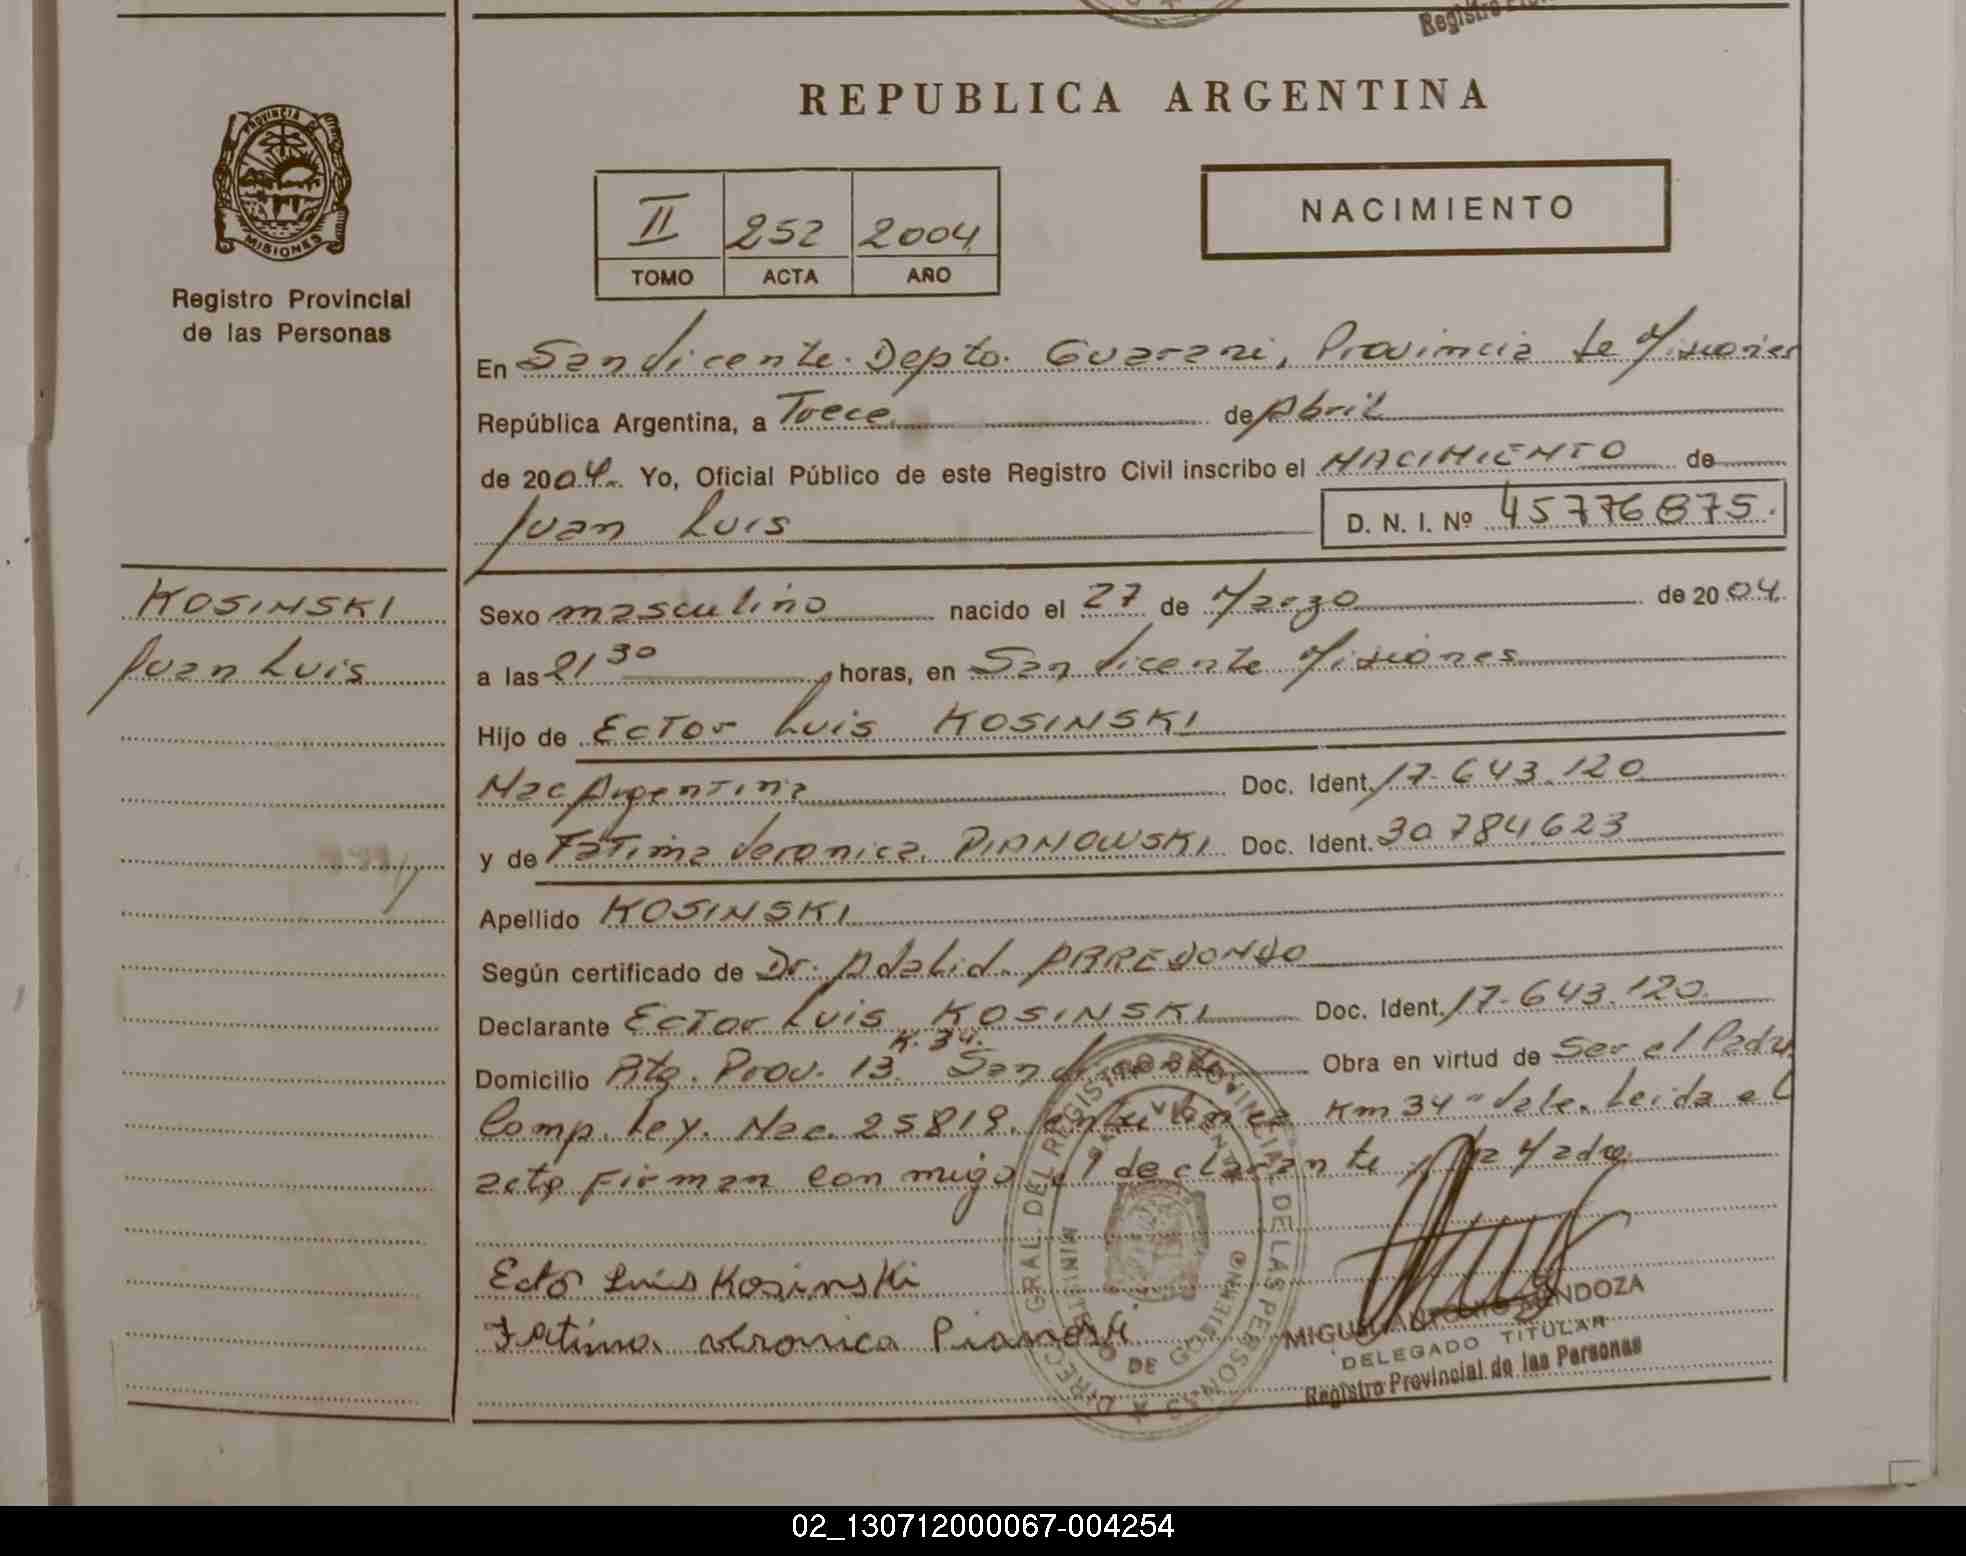 Registro
REPUBLICA ARGENTINA
PROVINCIA DE
MISIONES
Registro Provincial
de las Personas
II 252 2004
TOMO ACTA AÑO
NACIMIENTO
En San Vicente. Depto. Guarani, Provincia de Misiones
República Argentina, a Trece de Abril
de 2004. Yo, Oficial Público de este Registro Civil inscribo el NACIMIENTO de
Juan Luis D. N. I. Nº 45776875.
KOSINSKI
Juan Luis
Sexo masculino nacido el 27 de Marzo de 2004.
a las 21 30 horas, en San Vicente Misiones
Hijo de Ector Luis KOSINSKI
Nac Argentina Doc. Ident. 17.643.120
y de Fatima Veronica PIANOWSKI Doc. Ident. 30784623
Apellido KOSINSKI
Según certificado de Dr. Adalid ARREDONDO
Declarante Ector Luis KOSINSKI Doc. Ident. 17.643.120
K. 34.
Domicilio Rta. Prov. 13 San Vicente Obra en virtud de Ser el Padre
Comp. Ley. Nac. 25819. Km 34" Vale. Leida el
acta Firman con migo el declarante y la Madre
Ecto Luis Kosinski
Fatima veronica
DIREC. GRAL. DEL REGISTRO PROVINCIAL DE LAS PERSONAS
SAN VICENTE
DE GOBIERNO
MIGUEL ANTONIO MENDOZA
DELEGADO TITULAR
Registro Provincial de las Personas
02_130712000067-004254